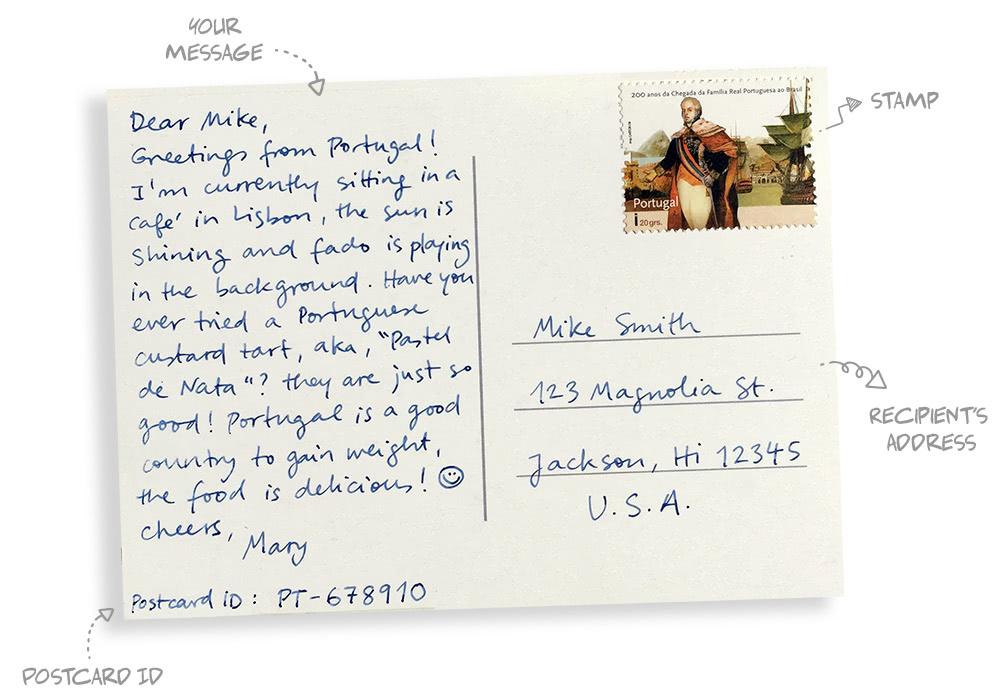 YOUR
MESSAGE
Dear Mike,
Greetings from Portugal!
I'm currently sitting in a
café in Lisbon, the sun is
shining and fado is playing
in the background. Have you
ever tried a Portuguese
custard tart, aka, "Pastel
de Nata"? they are just so
good! Portugal is a good
country to gain weight,
the food is delicious! ☺
cheers,
Mary
Postcard ID: PT-678910
POSTCARD ID
200 anos da Chegada da Família Real Portuguesa ao Brasil
Portugal
i 20 grs.
STAMP
Mike Smith
123 Magnolia St.
Jackson, Hi 12345
U.S.A.
RECIPIENT'S
ADDRESS